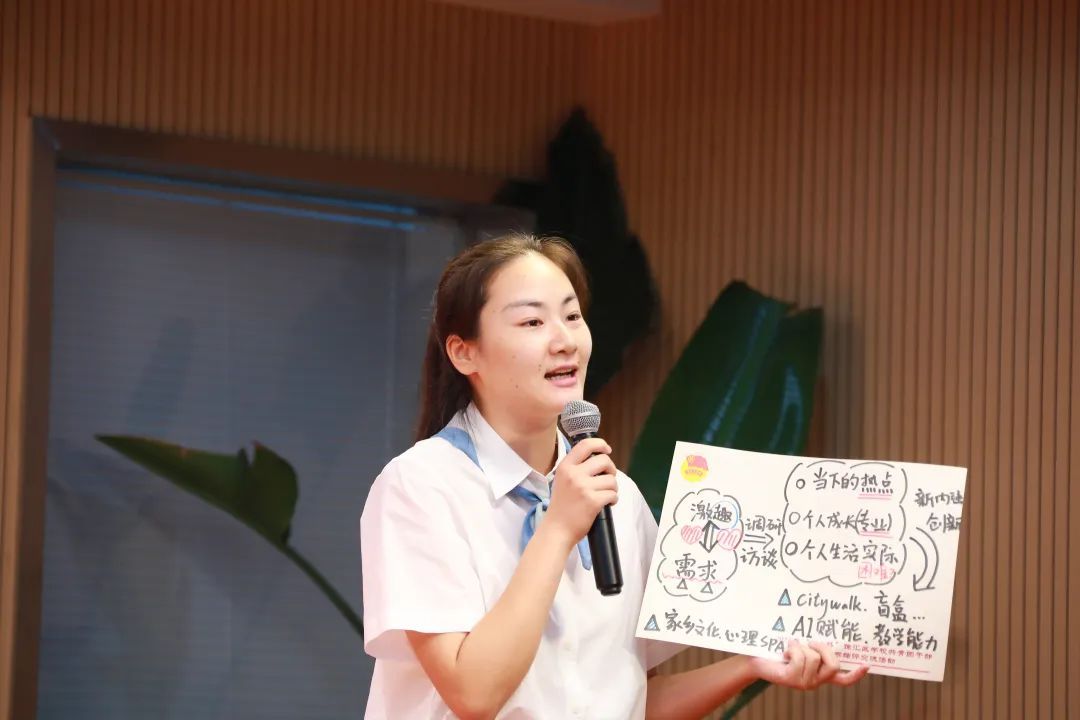 ○当下的热点
激趣
调研
○个人成长(专业)
创新
访谈
○个人生活实际
需求
困难
△citywalk. 盲盒...
△家乡文化.心理SPA
△AI赋能.教学能力
徐汇区学校共青团干部